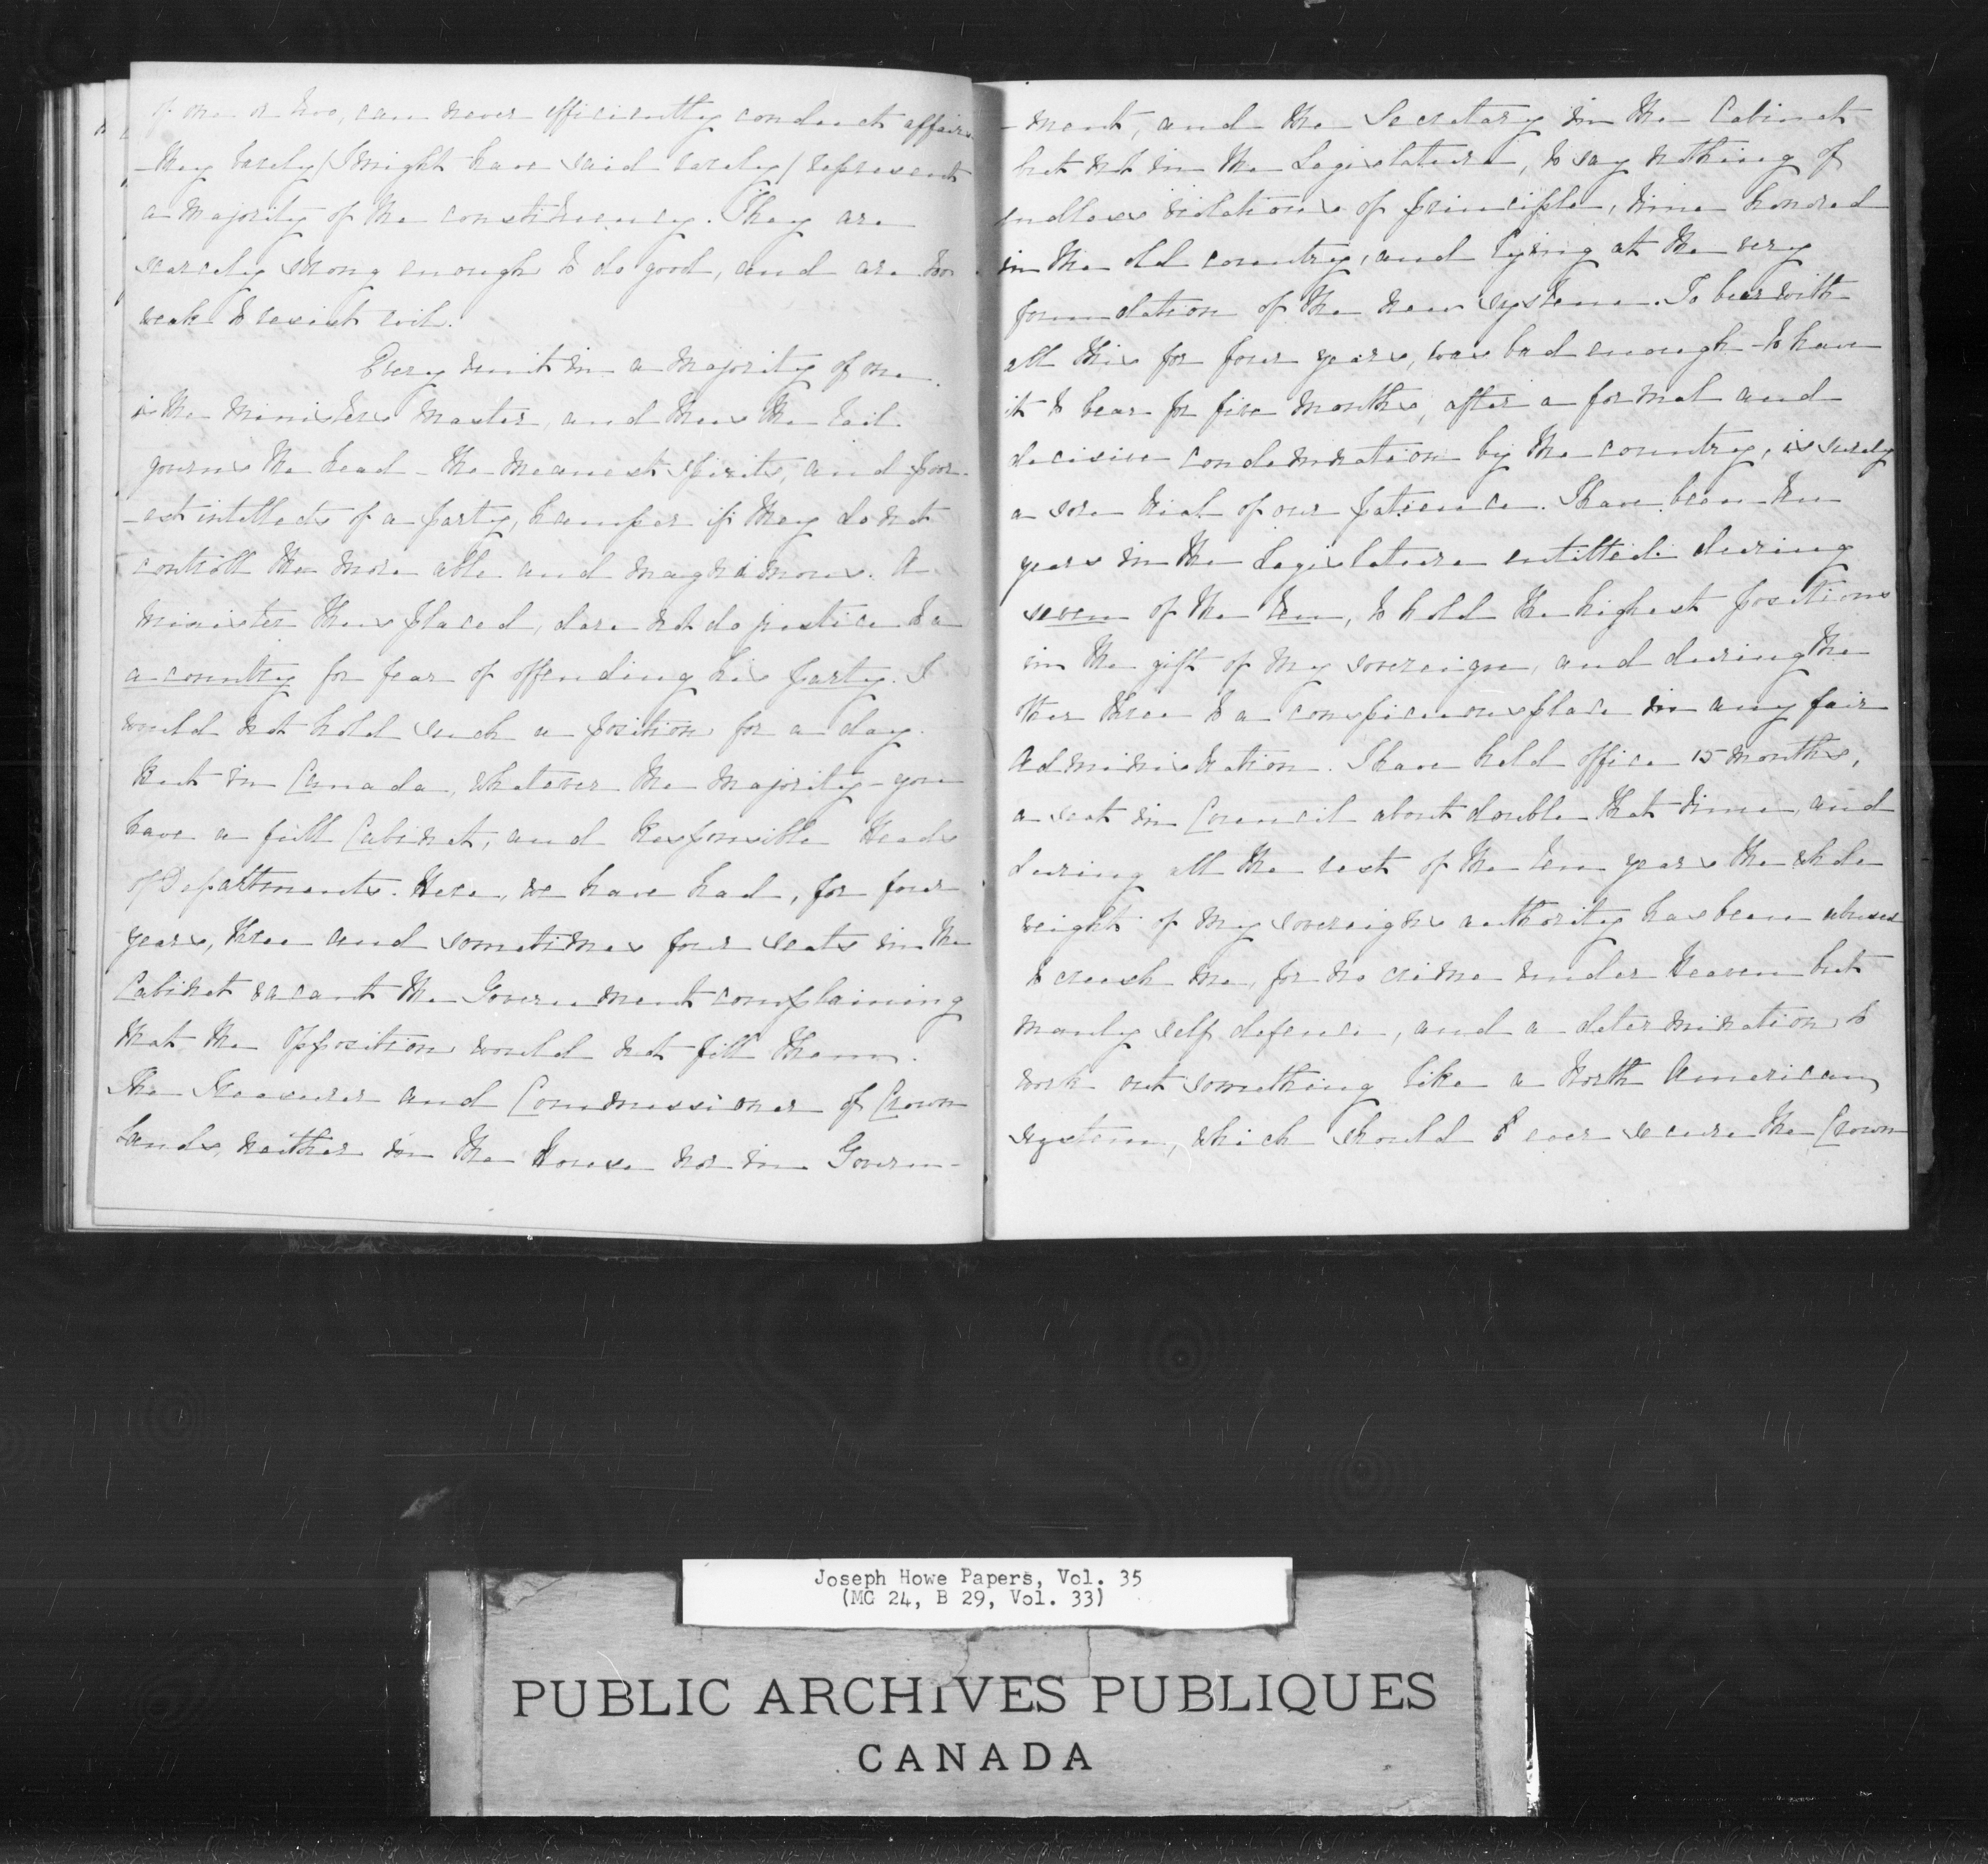 of one or two, can never efficiently conduct affairs
- they barely (I might have said rarely) represent
a majority of the constituency. They are
scarcely strong enough to do good, and are too
weak to resist evil.
Every unit in a majority of one
is the ministers master, and thus the tail
governs the head - the meanest spirits, and poor-
-est intellects of a party, hamper if they do not
controll the more able and magnanimous. A
minister thus placed, dare not do justice to a
a country for fear of offending his party. I
would not hold such a position for a day.
But in Canada, whatever the majority - you
have a full Cabinet, and Responsible Heads
of Departments. Here, we have had, for four
years, three and sometimes four seats in the
Cabinet vacant the Government complaining
that the Opposition would not fill them.
The Treasurer and Commissioner of Crown
Lands, neither in the House nor in Govern-
-ment, and the Secretary in the Cabinet
but not in the Legislature, to say nothing of
endless violations of principle, time honored
in the old country, and lying at the very
foundation of the new system. To bear with
all this for four years, was bad enough - to have
it to bear for five months, after a formal and
decisive condemnation by the country, is surely
a sore trial of our patience. I have been ten
years in the Legislature entitled during
seven of the ten, to hold the highest positions
in the gift of my sovereign, and during the
other three to a conspicuous place in any fair
Administration. I have held office 15 months,
a seat in Council about double that time, and
during all the rest of the ten years the whole
weight of my sovereigns authority has been abused
to crush me, for no crime under Heaven but
manly self defence, and a determination to
work out something like a North American
system, which should for ever secure the Crown
Joseph Howe Papers, Vol. 35
(MG 24, B 29, Vol. 33)
PUBLIC ARCHIVES PUBLIQUES
CANADA